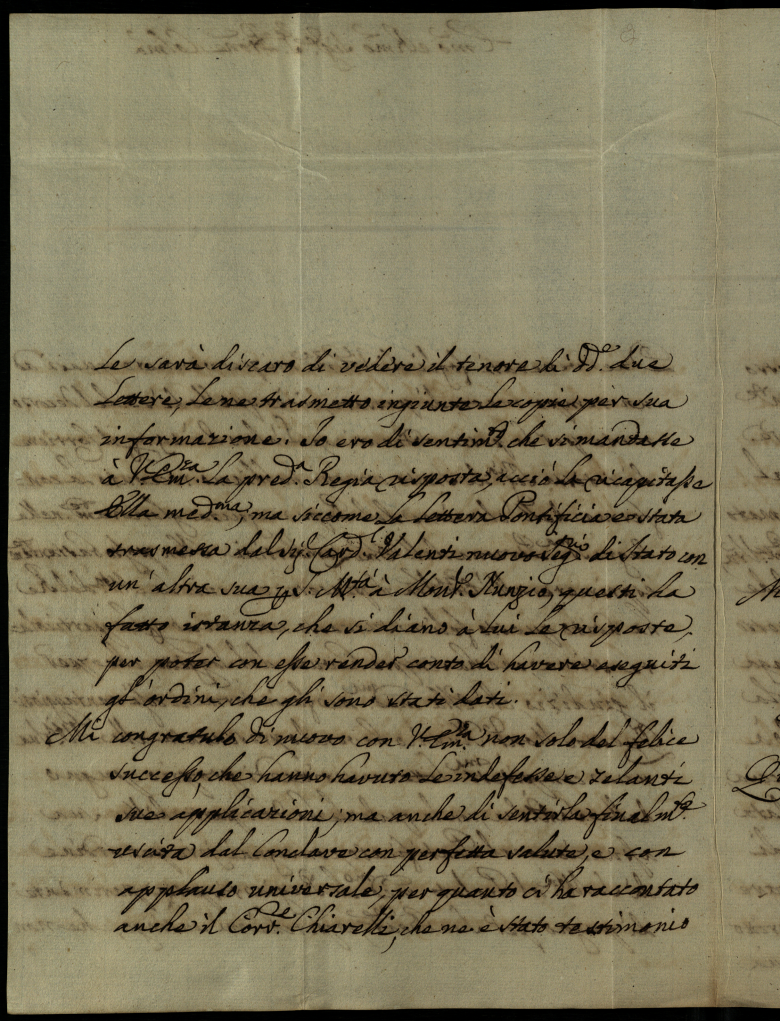 Le sarà discaro di vedere il tenore di dd.e due
Lettere, le ne trasmetto ingiunte le copie per sua
informazione. Io ero di sentim.to che si mandasse
à V. Em.za la pred.a Regia risposta, acciò la ricapitasse
Ella med.ma, ma siccome la lettera Pontificia e stata
trasmessa dal Sig.r Card.l Valenti nuovo Seg.rio di Stato con
un' altra sua p S. M.tà à Mons.r Nunzio, questi ha
fatto istanza, che si diano à lui le risposte,
per poter con esse render conto di havere eseguiti
gl' ordini, che gli sono stati dati.
Mi congratulo di nuovo con V. Em.za non solo del felice
successo, che hanno havuto le indefesse e zelanti
sue applicazioni, ma anche di sentirla finalm.te
uscita dal Conclave con perfetta salute, e con
applauso universale, per quanto ci ha raccontato
anche il Corr.e Chiarelli, che ne è stato testimonio